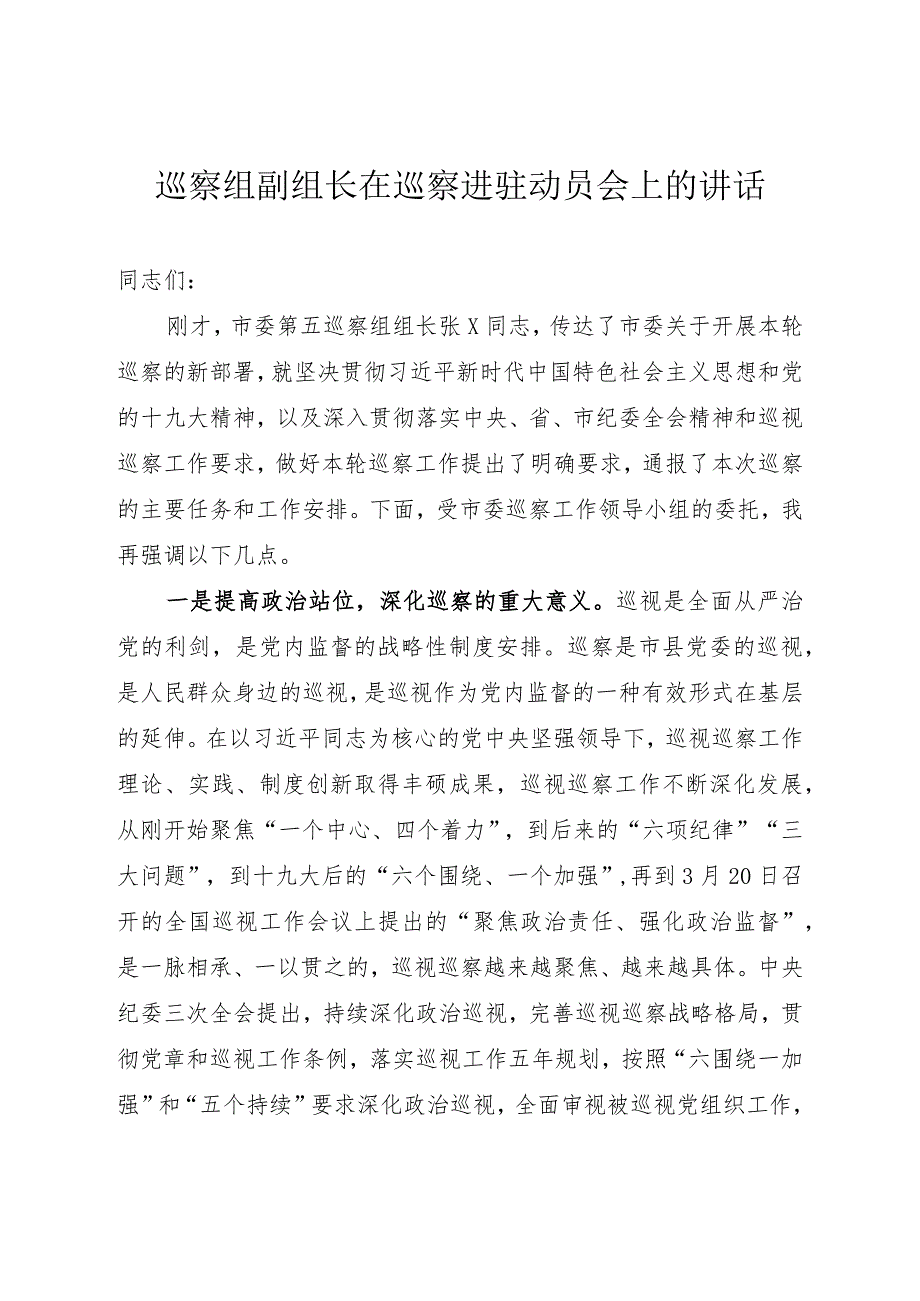 巡察组副组长在巡察进驻动员会上的讲话
同志们：
刚才，市委第五巡察组组长张X同志，传达了市委关于开展本轮
巡察的新部署，就坚决贯彻习近平新时代中国特色社会主义思想和党
的十九大精神，以及深入贯彻落实中央、省、市纪委全会精神和巡视
巡察工作要求，做好本轮巡察工作提出了明确要求，通报了本次巡察
的主要任务和工作安排。下面，受市委巡察工作领导小组的委托，我
再强调以下几点。
一是提高政治站位，深化巡察的重大意义。巡视是全面从严治
党的利剑，是党内监督的战略性制度安排。巡察是市县党委的巡视，
是人民群众身边的巡视，是巡视作为党内监督的一种有效形式在基层
的延伸。在以习近平同志为核心的党中央坚强领导下，巡视巡察工作
理论、实践、制度创新取得丰硕成果，巡视巡察工作不断深化发展，
从刚开始聚焦“一个中心、四个着力”，到后来的“六项纪律”“三
大问题”，到十九大后的“六个围绕、一个加强”,再到3月20日召
开的全国巡视工作会议上提出的“聚焦政治责任、强化政治监督”，
是一脉相承、一以贯之的，巡视巡察越来越聚焦、越来越具体。中央
纪委三次全会提出，持续深化政治巡视，完善巡视巡察战略格局，贯
彻党章和巡视工作条例，落实巡视工作五年规划，按照“六围绕一加
强”和“五个持续”要求深化政治巡视，全面审视被巡视党组织工作，